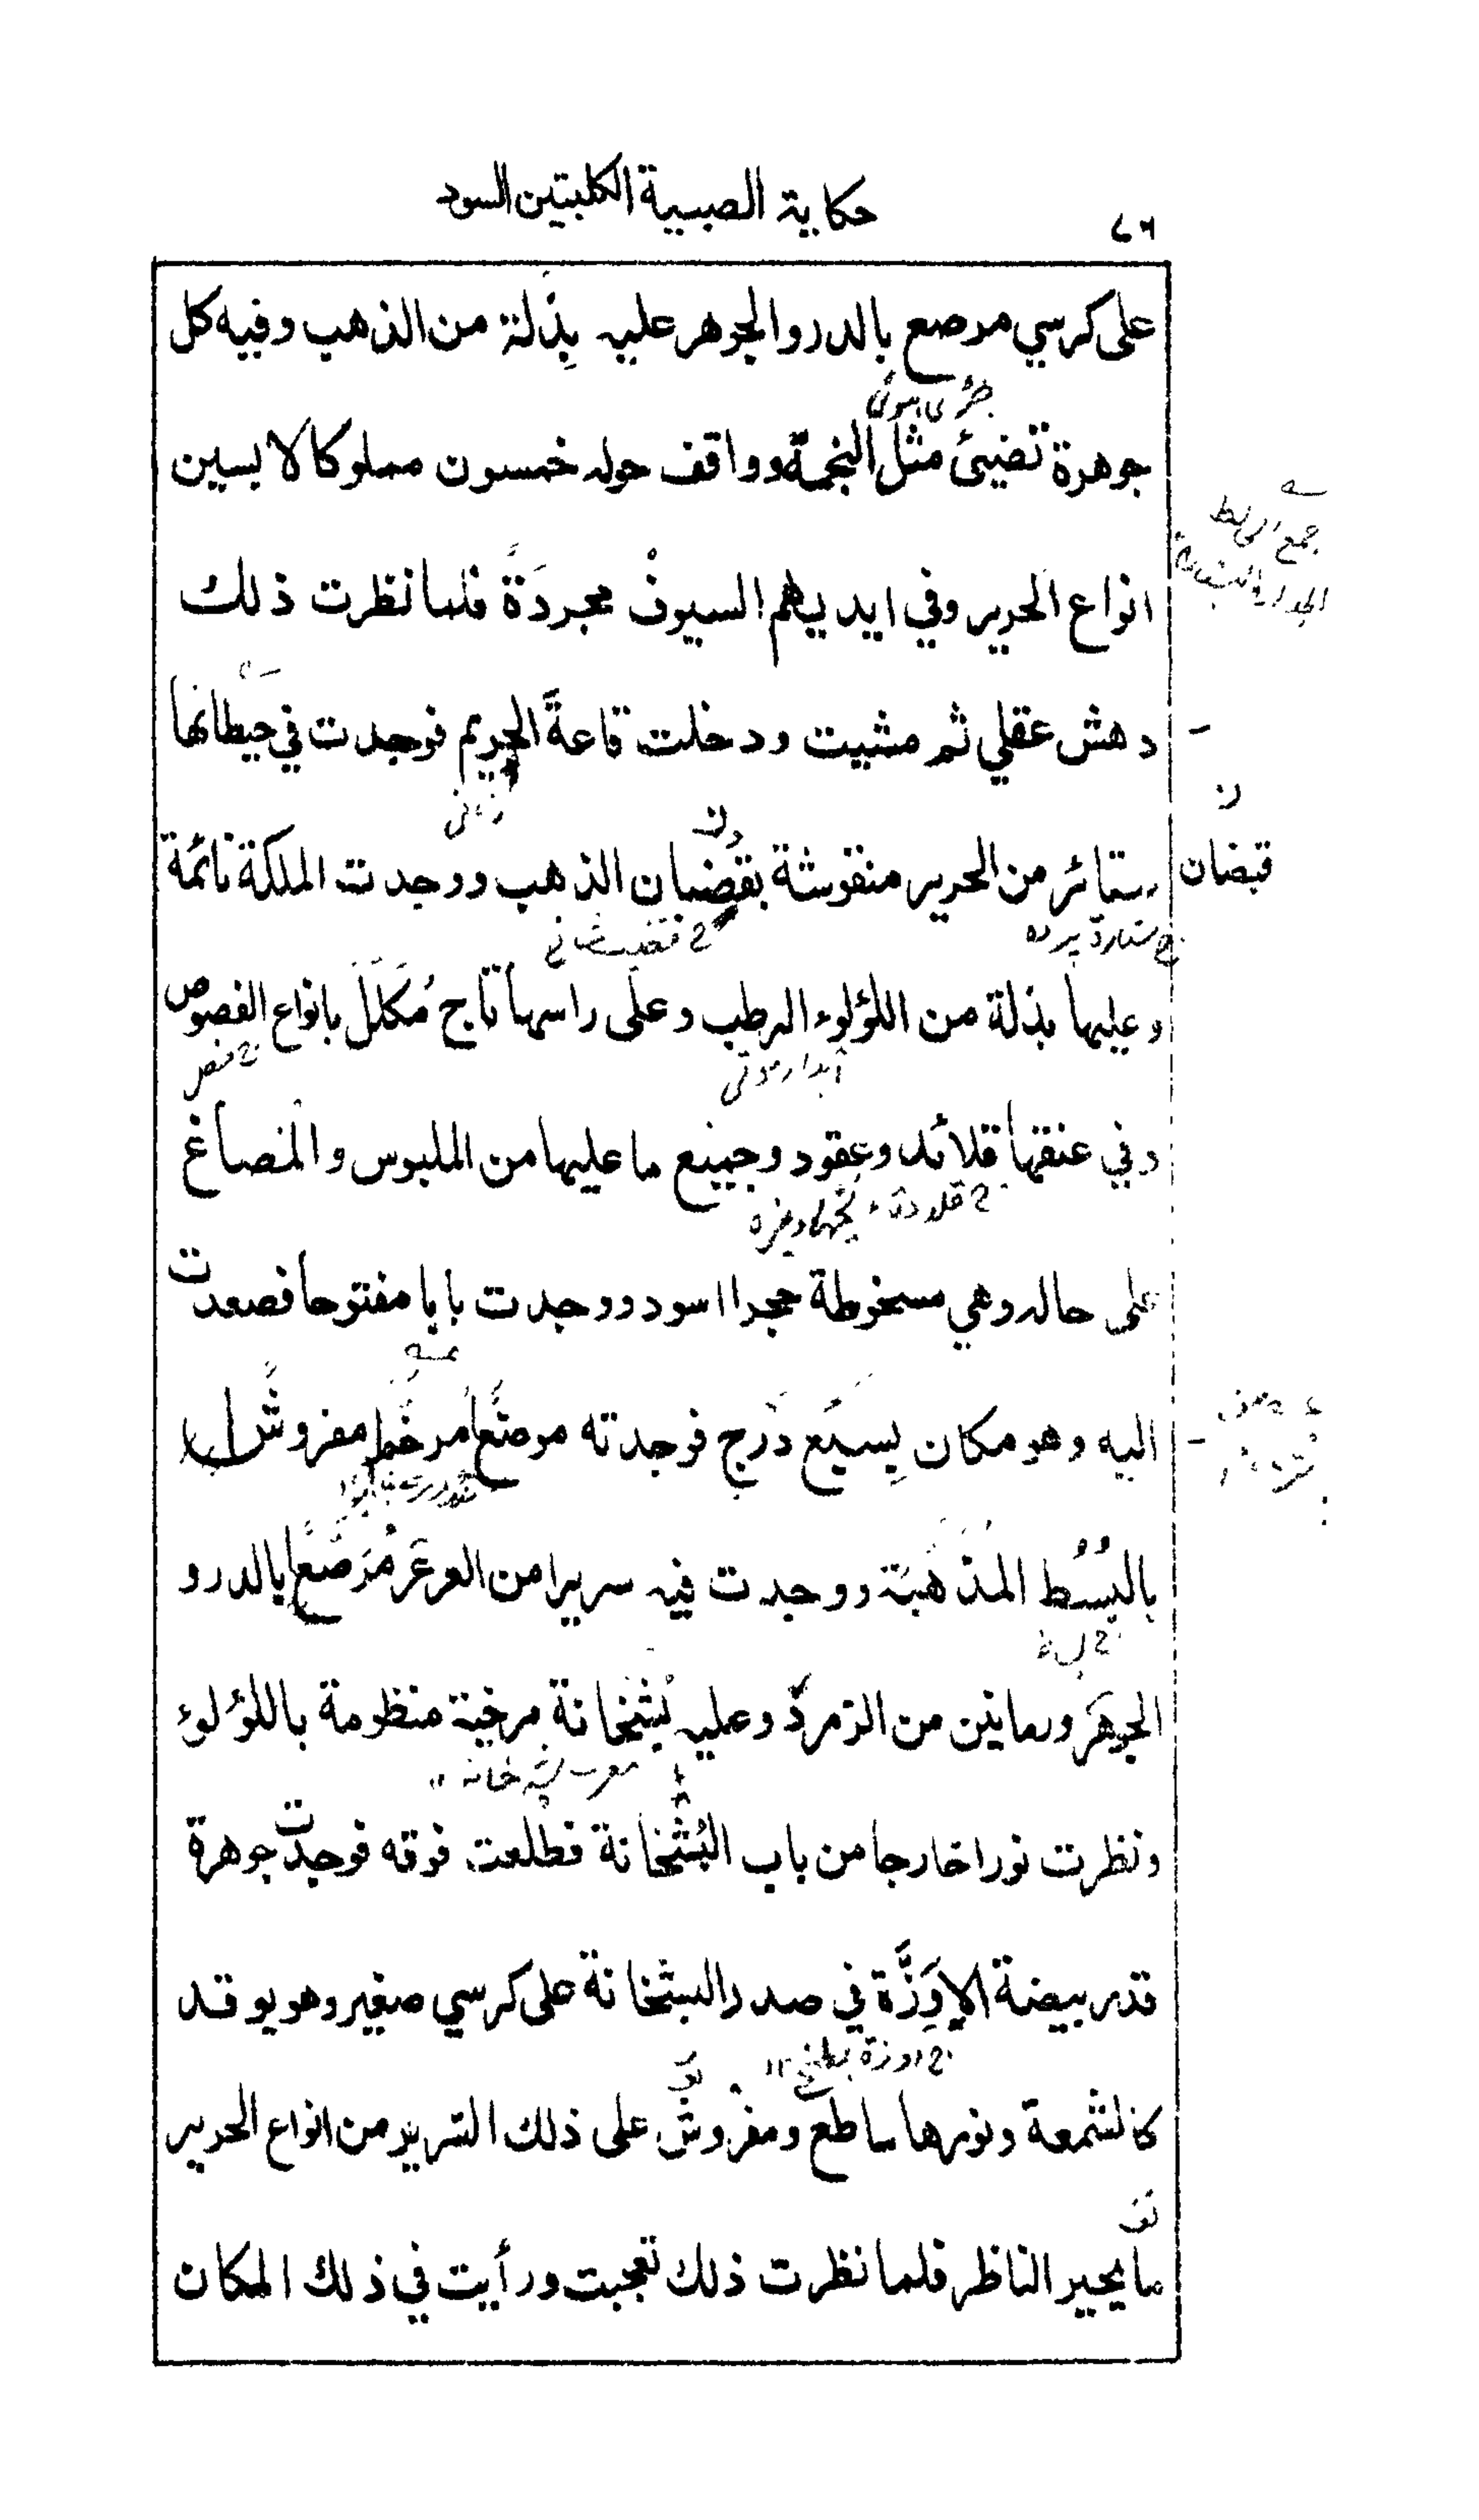 ٤٦
حكاية الصبية الكلبتين السود
على كرسي مرصع بالدر والجوهر عليه بِذلة من الذهب وفيه كل
جوهرة تضيئ مثل النجمة وواقف حوله خمسون مملوكا لابسين
انواع الحرير وفي ايديهم السيوف مجردة فلما نظرت ذلك
دهش عقلي ثم مشيت ودخلت قاعة الحريم فوجدت في حيطانها
قبضان
ستائر من الحرير منقوشة بقُضبان الذهب ووجدت الملكة نائمة
وعليها بذلة من اللؤلوء الرطب وعلى راسها تاج مُكَلَل بانواع الفصوص
وفي عنقها قلائد وعقود وجميع ما عليها من الملبوس والمصاغ
على حاله وهي مسخوطة حجرا اسود ووجدت بابا مفتوحا فصعدت
اليه وهو مكان بِسبَع دَرج فوجدته موضعا مرخما مفروشا
بالبُسُط المذهبة ووجدت فيه سريرا من العرعر مُرَصَّعا بالدر و
الجوهر ورمانين من الزمرد وعليه بُشخانة مرخية منظومة باللؤلوء
ونظرت نورا خارجا من باب البُشخانة فطلعت فوقه فوجدت جوهرة
قدر بيضة الاِوَزَّة في صدر البشخانة على كرسي صغير وهو يوقد
كالشمعة ونورها ساطع ومفروش على ذلك السرير من انواع الحرير
ما يحير الناظر فلما نظرت ذلك تعجبت ورأيت في ذلك المكان